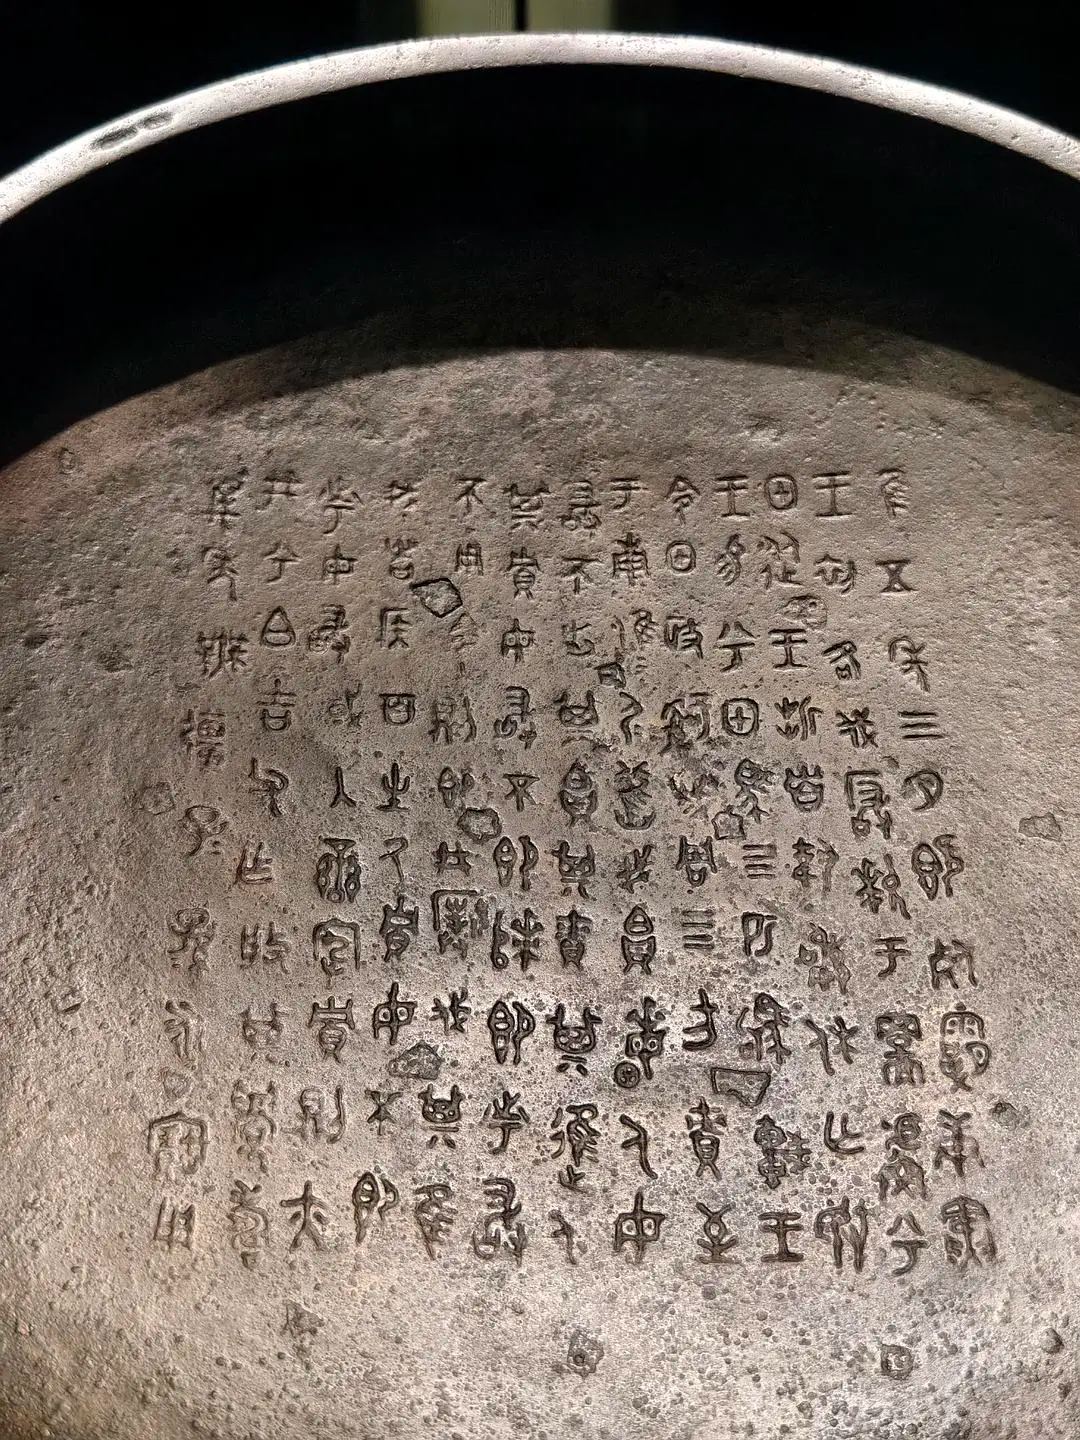 隹五年三月既死霸庚寅
王初各伐玁狁于𠭯𧇽兮
甲從王折首執訊休亡敃
王易兮甲馬四匹駒車王
令甲政𤔲成周四方責至
于南淮夷淮夷舊我帛畮人毋
敢不出其帛其責其進人
其貯毋敢不即次即市敢
不用令則即井撲伐其隹
我者侯百生厥貯毋不即
市毋敢或入蠻宄貯則亦
井兮白吉父乍般其眉壽
萬年無疆子子孫孫永寶用